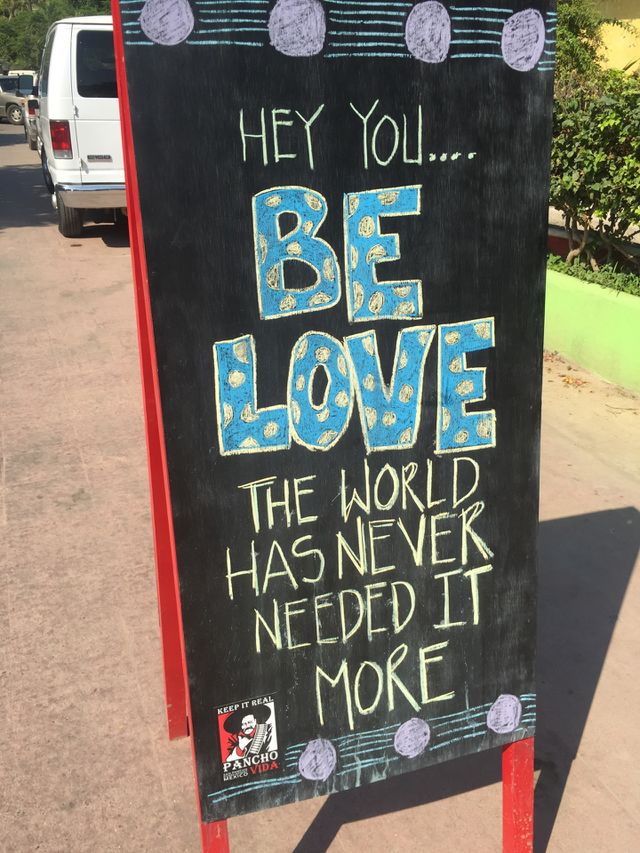 HEY YOU....
BE
LOVE
THE WORLD
HAS NEVER
NEEDED IT
MORE
KEEP IT REAL
PANCHO
VIDA
MEXICO